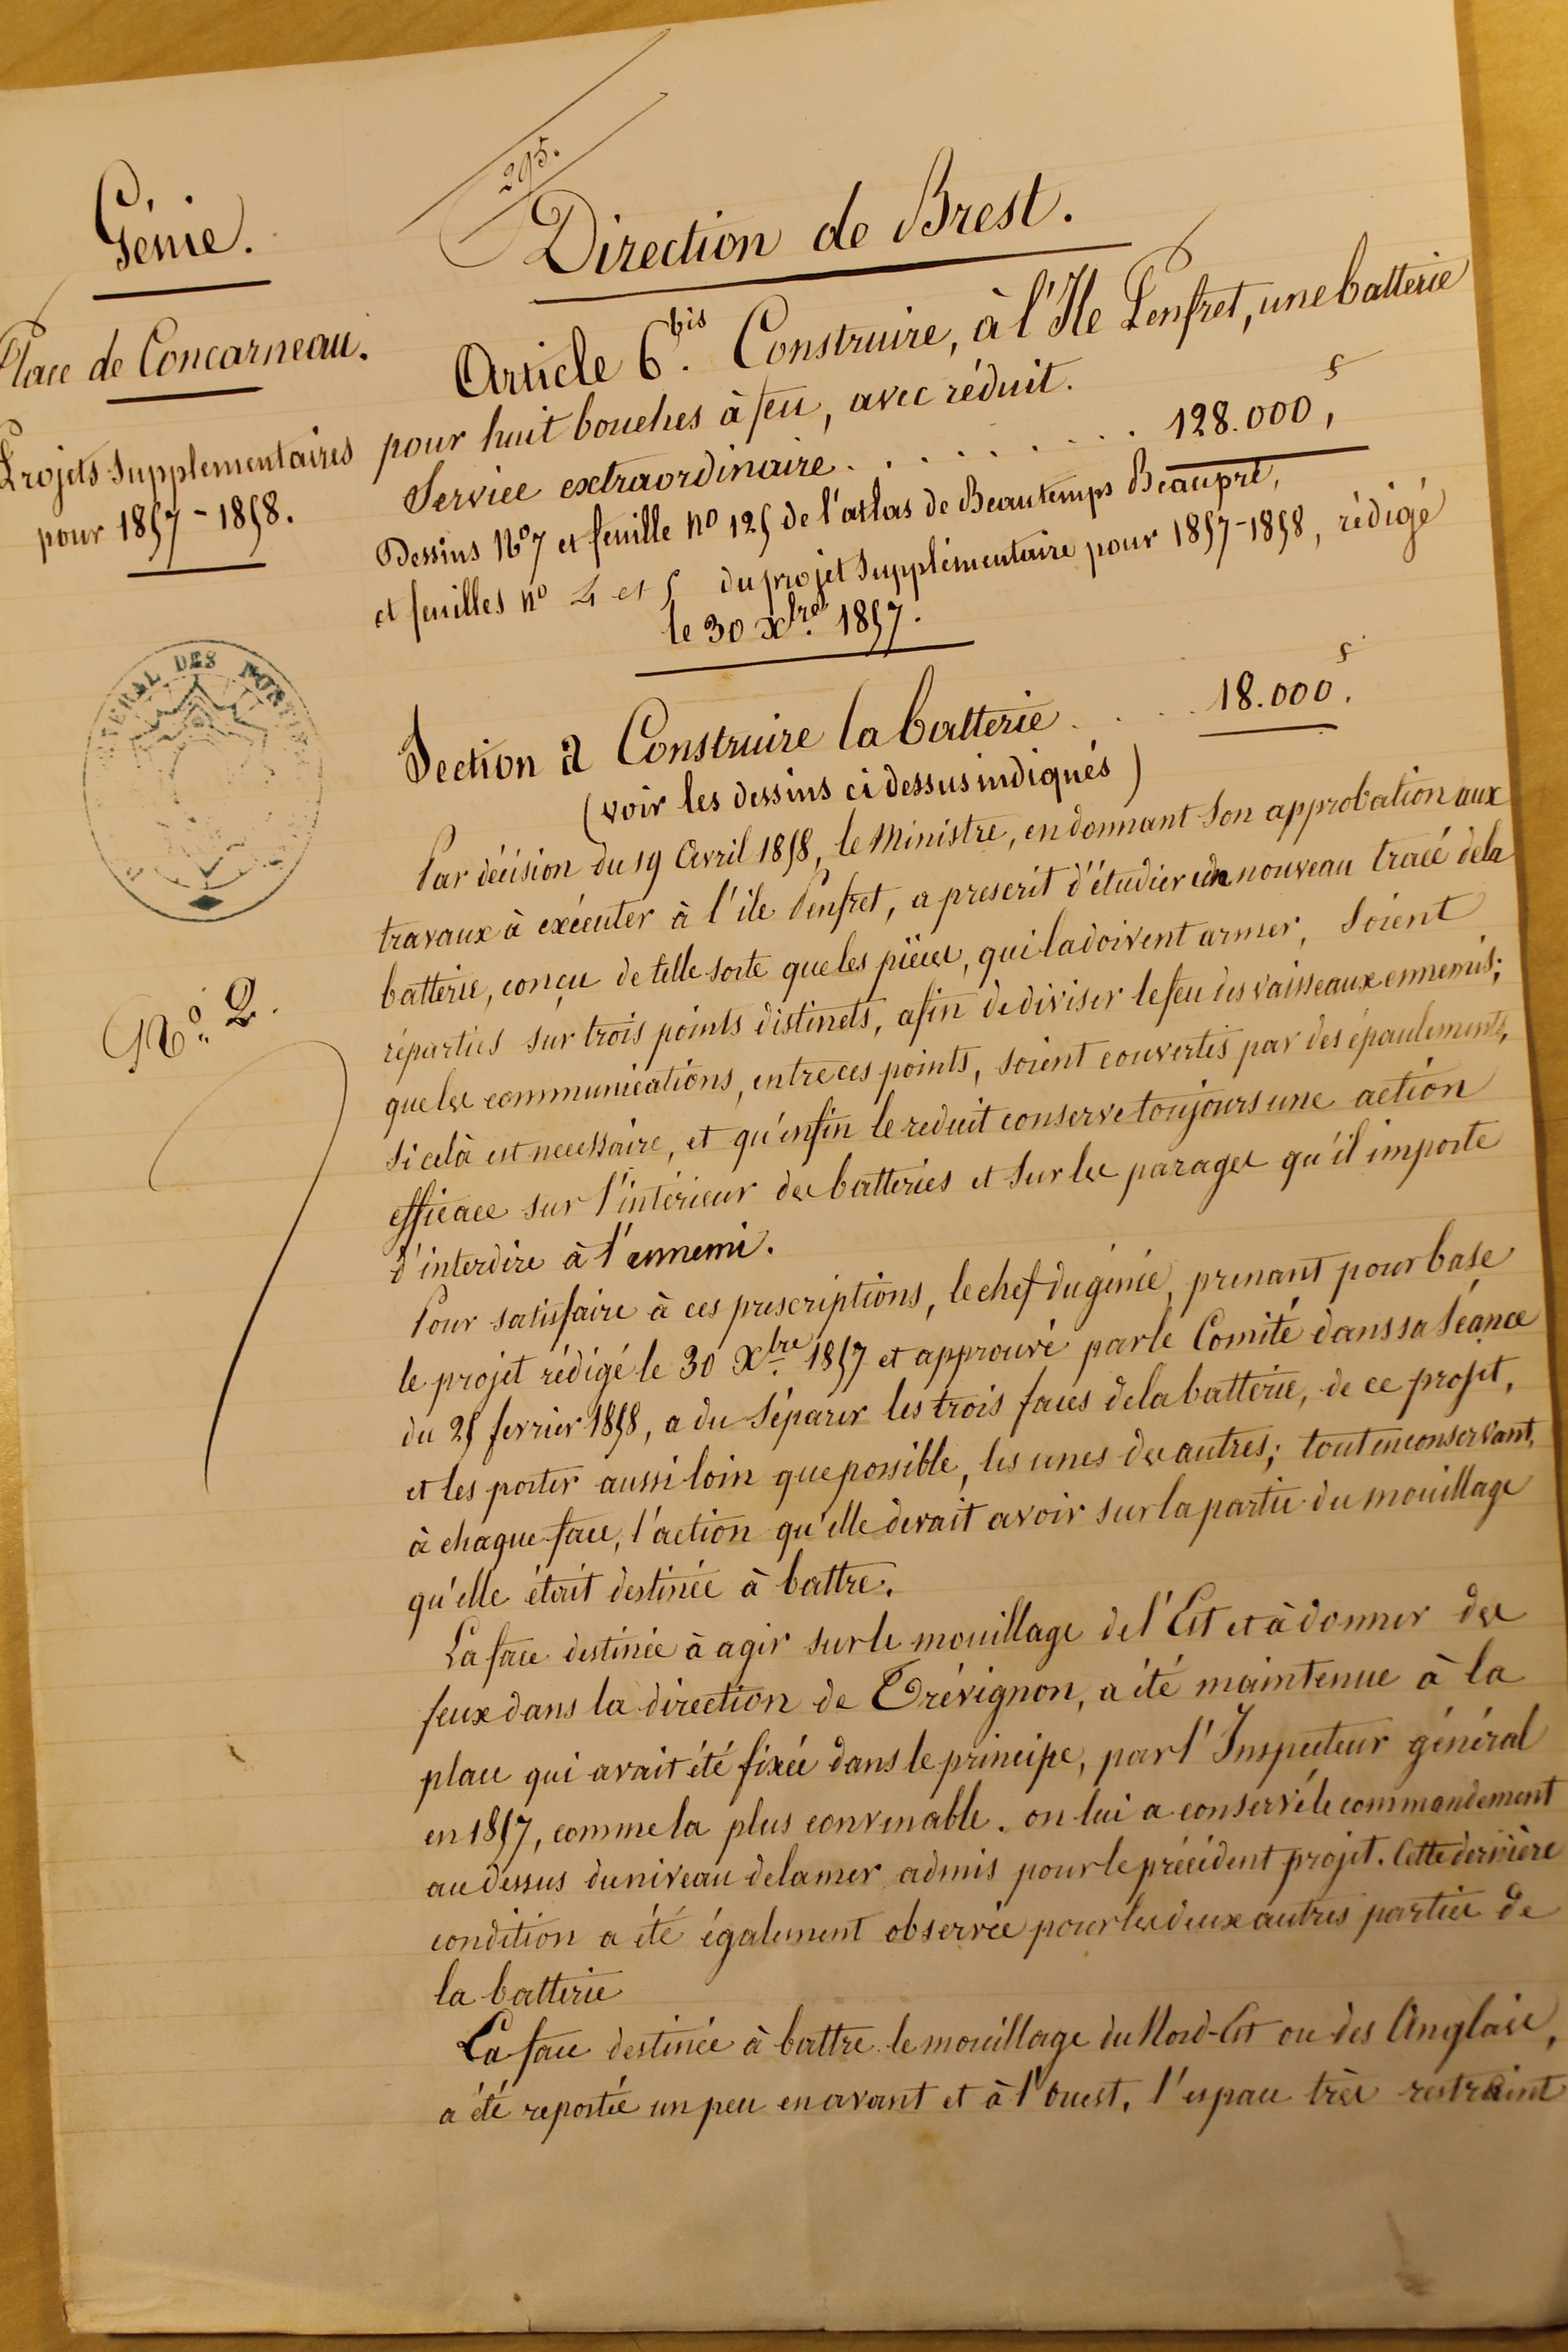 295.
Génie.
Direction de Brest.
Place de Concarneau.
Projets Supplementaires
pour 1857-1858.
Article 6 bis. Construire, à l'Ile Penfret, une batterie
pour huit bouches à feu, avec réduit.
Service extraordinaire . . . . . . . . 128.000 f,
Dessins No 7 et feuille no 125 de l'atlas de Beautemps Beaupré,
et feuilles no 4 et 5 du projet Supplémentaire pour 1857-1858, rédigé
le 30 Xbre. 1857.
DES
No. 2.
Section a Construire la batterie . . . . 18.000 f.
(voir les dessins ci dessus indiqués)
Par décision du 19 Avril 1858, le Ministre, en donnant son approbation aux
travaux à exécuter à l'ile Penfret, a prescrit d'étudier un nouveau tracé de la
batterie, conçu de telle sorte que les pièces, qui la doivent armer, soient
réparties sur trois points distincts, afin de diviser le feu des vaisseaux ennemis;
que les communications, entre ces points, soient couvertes par des épaulements,
si celà est necessaire, et qu'enfin le reduit conserve toujours une action
efficace sur l'intérieur des batteries et sur les parages qu'il importe
d'interdire à l'ennemi.
Pour satisfaire à ces prescriptions, le chef du génie, prenant pour base
le projet rédigé le 30 Xbre 1857 et approuvé par le Comité dans sa Séance
du 25 fevrier 1858, a du séparer les trois faces de la batterie, de ce projet,
et les porter aussi loin que possible, les unes des autres; tout en conservant,
à chaque face, l'action qu'elle devait avoir sur la partie du mouillage
qu'elle était destinée à battre.
La face destinée à agir sur le mouillage de l'Est et à donner des
feux dans la direction de Trévignon, a été maintenue à la
place qui avait été fixée dans le principe, par l'Inspecteur général
en 1857, comme la plus convenable. on lui a conservé le commandement
au dessus du niveau de la mer admis pour le précédent projet. Cette dernière
condition a été également observée pour les deux autres parties de
la batterie
La face destinée à battre le mouillage du Nord-Est ou des Anglais,
a été reportée un peu en avant et à l'ouest. l'espace très restraint